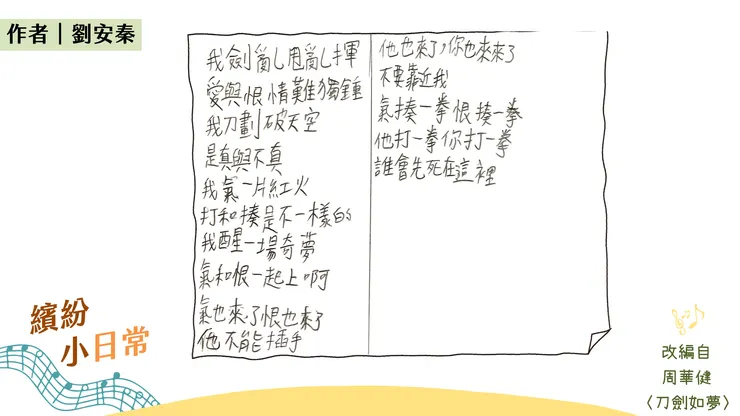 作者｜劉安秦
我劍亂甩亂揮
愛與恨情難獨鍾
我刀劃破天空
是真與不真
我氣一片紅火
打和揍是不一樣的
我醒一場奇夢
氣和恨一起上啊
氣也來了恨也來了
他不能插手
他也來了,你也來來了
不要靠近我
氣揍一拳恨揍一拳
他打一拳你打一拳
誰會先死在這裡
繽紛
小日常
改編自
周華健
〈刀劍如夢〉